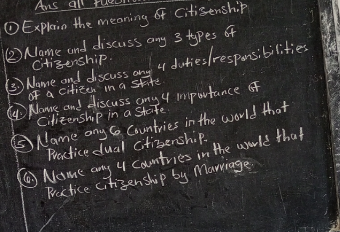 Ans all
① Explain the meaning of Citizenship
② Name and discuss any 3 types of
Citizenship.
③. Name and discuss any 4 duties/responsibilities
of a citizen in a state.
④. Name and discuss any 4 importance of
Citizenship in a state.
⑤ Name any 6 Countries in the world that
Practice dual Citizenship.
⑥. Name any 4 Countries in the world that
Practice Citizenship by Marriage.